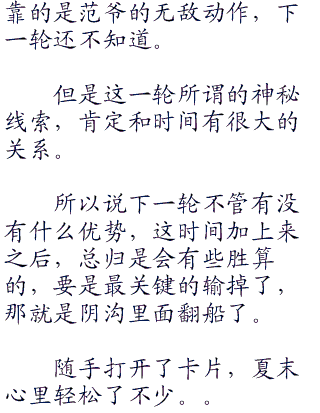 靠的是范爷的无敌动作，下
一轮还不知道。
但是这一轮所谓的神秘
线索，肯定和时间有很大的
关系。
所以说下一轮不管有没
有什么优势，这时间加上来
之后，总归是会有些胜算
的，要是最关键的输掉了，
那就是阴沟里面翻船了。
随手打开了卡片，夏末
心里轻松了不少。。